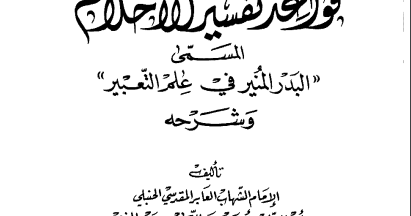 قواعد تفسير الأحلام
المسمّى
«البَدْرُ المُنير في عِلمِ التَّعبير»
وَشَرْحه
تأليف
الإمام الشهاب العابر المقدسي الحنبلي